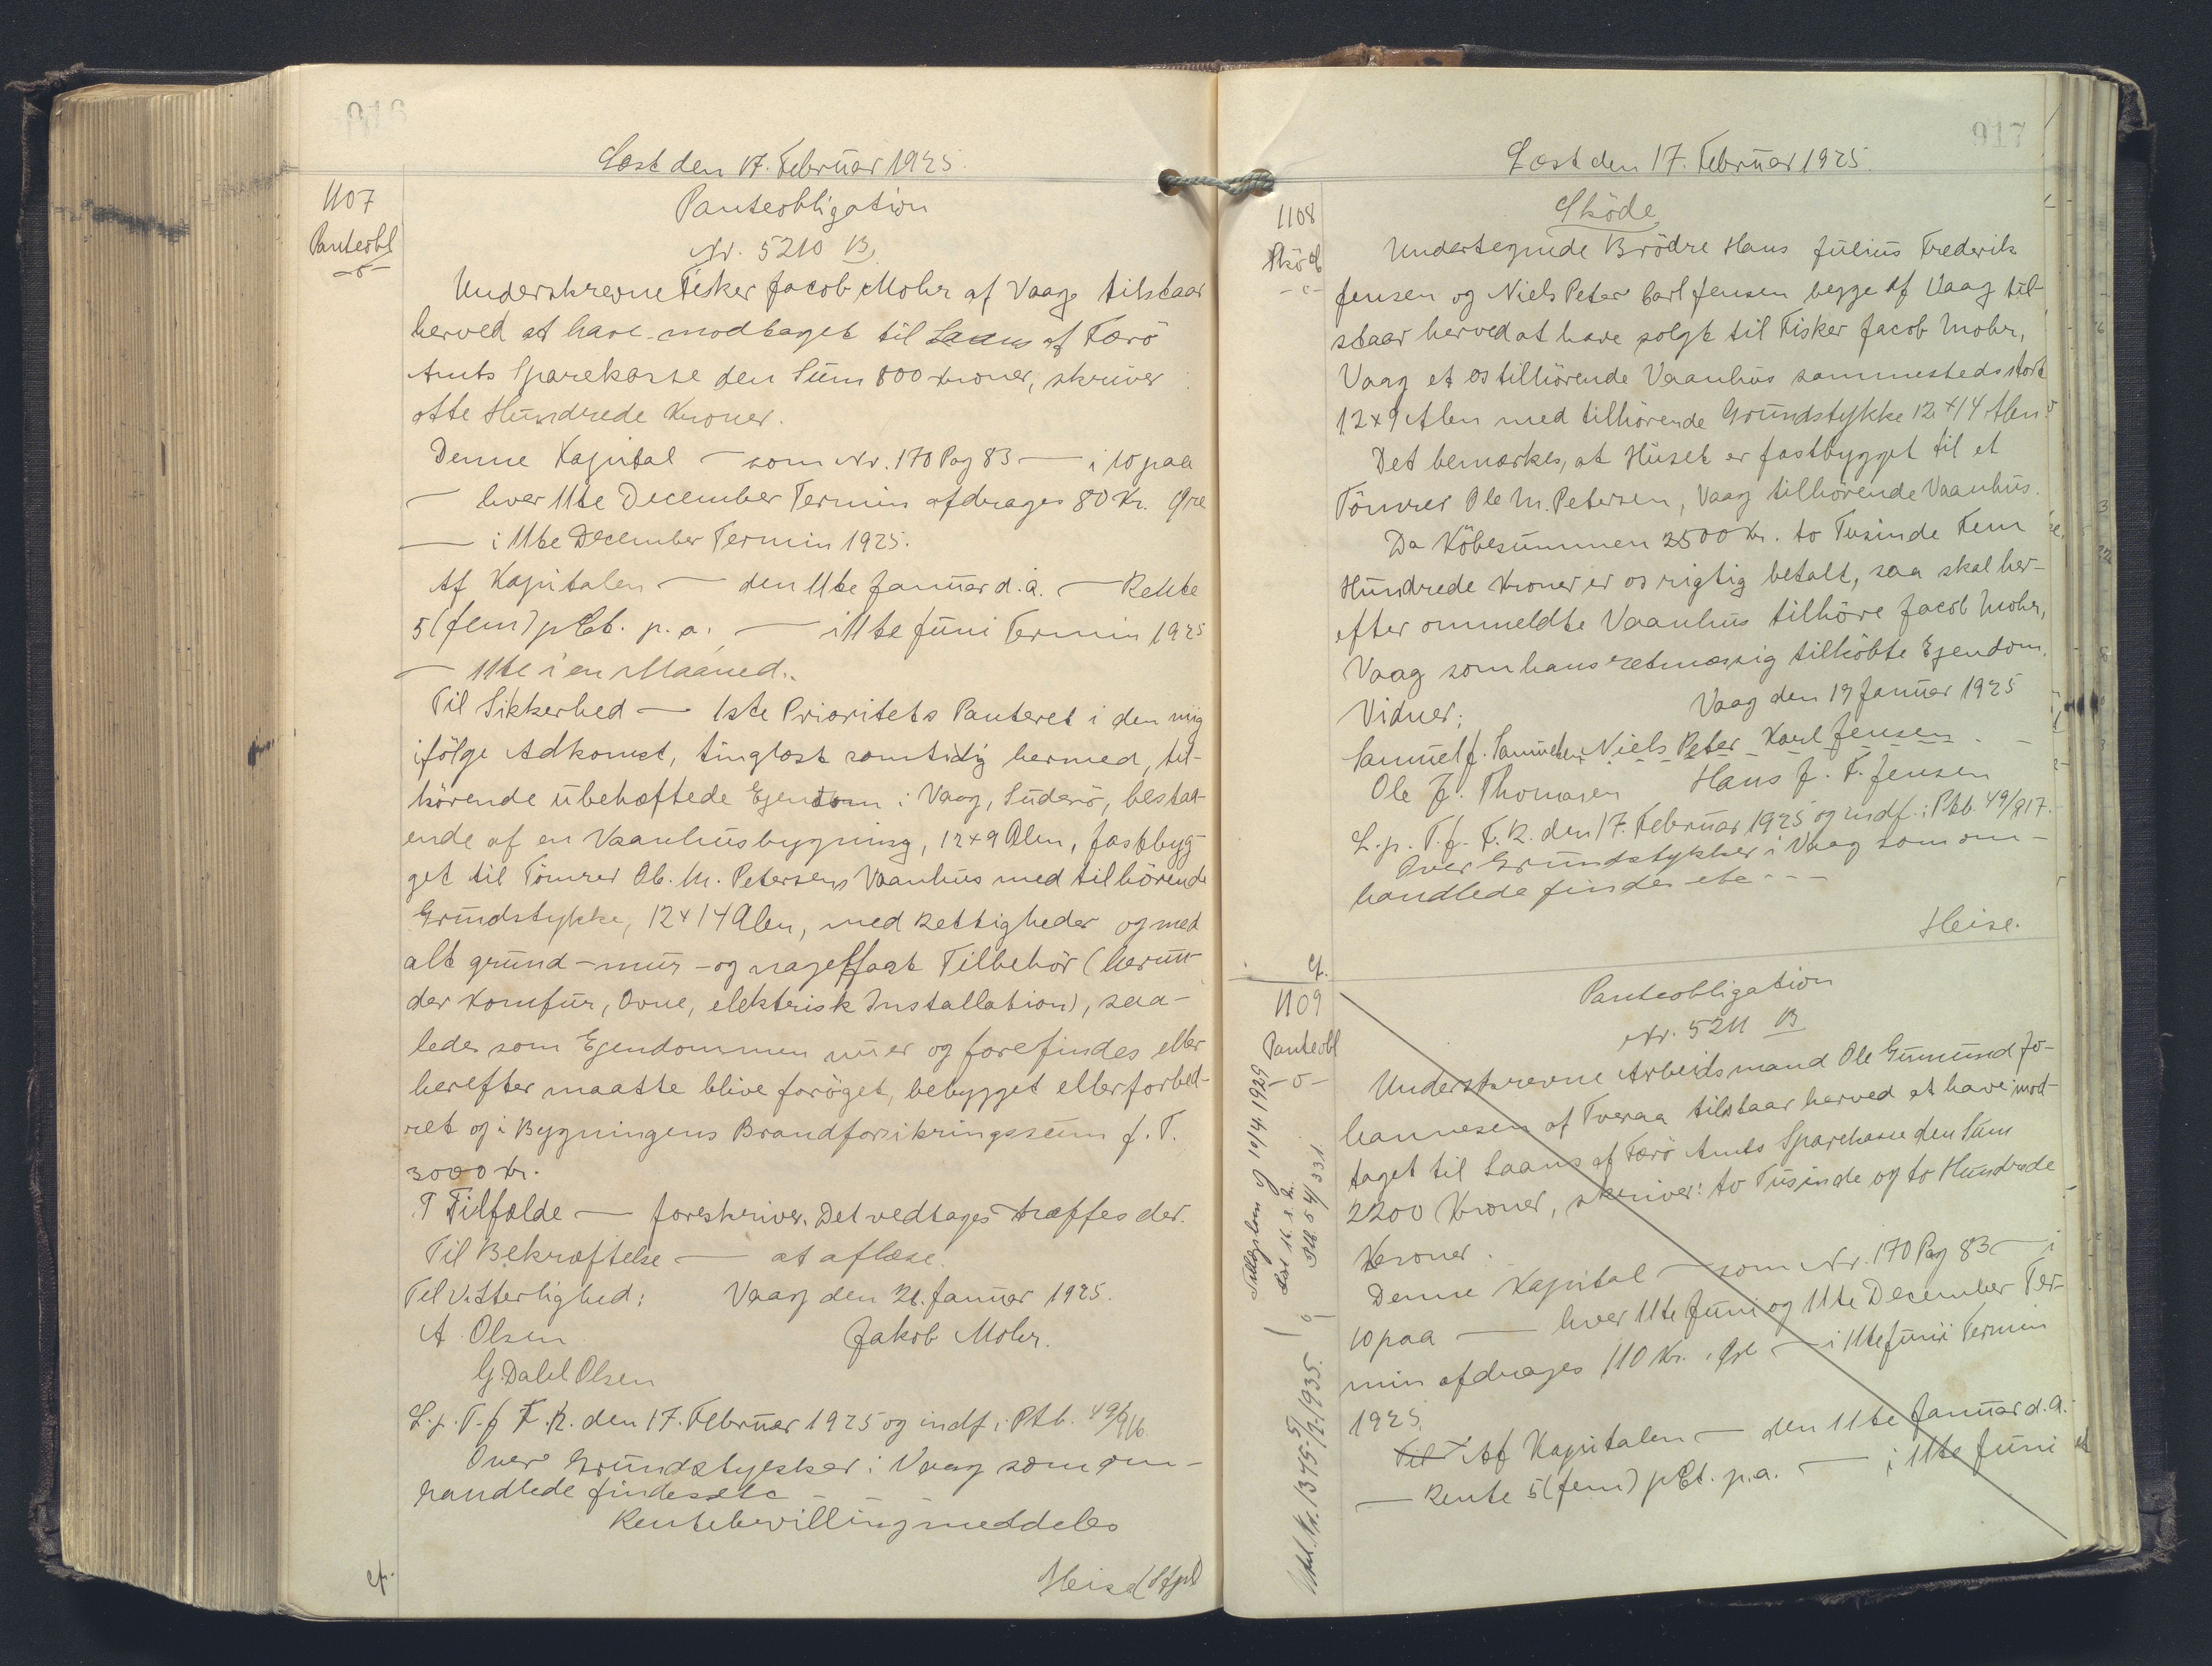 916
Læst den 17. Februar 1925.
1107
Panteobl
Panteobligation
Nr. 5210 B
Underskrevne Fisker Jacob Mohr af Vaag tilstaar
herved at have modtaget til Laans af Færö
Amts Sparekasse den Sum 800 Kroner, skriver
otte Hundrede Kroner.
Denne Kapital — som Nr. 170 Pag 83 — i 10 paa
— hver 11te December Termin afdrages 80 Kr. Øre
— i 11te December Termin 1925.
Af Kapitalen — den 11te Januar d.a. — Rente
5 (fem) pCt. p.a. — i 11te Juni Termin 1925
— 11te i en Maaned.
Til Sikkerhed — 1ste Prioritets Panteret i den mig
ifölge Adkomst, tinglæst samtidig hermed, til-
hörende ubehæftede Ejendom i Vaag, Suderö, bestaa-
ende af en Vaanhusbygning, 12x9 Alen, fastbyg-
get til Tömrer Ole M. Petersens Vaanhus med tilhörende
Grundstykke, 12x14 Alen, med Rettigheder og med
alt grund- mur- og nagelfast Tilbehör (herun-
der Komfur, Ovne, elektrisk Installation), saa-
ledes som Ejendommen nu er og forefindes eller
herefter maatte blive foröget, bebygget eller forbed-
ret og i Bygningens Brandforsikringssum f. T.
3000 Kr.
I Tilfælde — foreskriver. Det vedtages træffes der.
Til Bekræftelse — at aflæse.
Til Vitterlighed: Vaag den 21. Januar 1925.
A. Olsen Jakob Mohr.
G Dahl Olsen
L. p. T. f. F. R. den 17. Februar 1925 og indf. i Ptb. 49/916
Over Grundstykker i Vaag som om-
handlede findes etc —
Rentebevilling meddeles
Heise (Stpl)
cf.
917
Læst den 17. Februar 1925.
1108
Sköde
Sköde
Undertegnede Brödre Hans Julius Frederik
Jensen og Niels Peter Carl Jensen begge af Vaag til-
staar herved at have solgt til Fisker Jacob Mohr,
Vaag et os tilhörende Vaanhus sammesteds stort
12x9 Alen med tilhörende Grundstykke 12x14 Alen.
Det bemærkes, at Huset er fastbygget til et
Tömrer Ole M. Petersen, Vaag tilhörende Vaanhus.
Da Köbesummen 2500 Kr. to Tusinde Fem
Hundrede Kroner er os rigtig betalt, saa skal her-
efter ommeldte Vaanhus tilhöre Jacob Mohr,
Vaag som hans retmæssig tilköbte Ejendom.
Vaag den 19 Januar 1925
Vidner:
Samuel J. Samuelsen Niels Peter Karl Jensen
Ole J. Thomasen Hans J. F. Jensen
L. p. T. f. F. R. den 17. Februar 1925 og indf. i Ptb. 49/917.
Over Grundstykker i Vaag som om-
handlede findes etc - - -
Heise.
cf.
1109
Panteobl
Panteobligation
Nr. 5211 B
Underskrevne Arbeidsmand Ole Gumund Jo-
hannesen af Tveraa tilstaar herved at have mod-
taget til Laans af Færö Amts Sparekasse den Sum
2200 Kroner, skriver: to Tusinde og to Hundrede
Kroner.
Denne Kapital — som Nr. 170 Pag 83 — i
10 paa — hver 11te Juni og 11te December Ter-
min afdrages 110 Kr. Øre — i 11te Juni Termin
1925.
Til Af Kapitalen — den 11te Januar d.a.
— Rente 5 (fem) pCt. p.a. — i 11te Juni
10/4 1929
Ptb 54/331
Nr. 1345 1935.